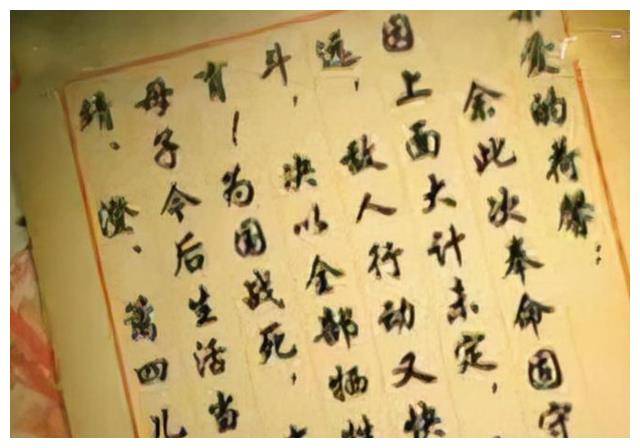 爱的荷馨：
余此次奉命固守
因上面大计未定，
远，敌人行动又快
斗，决以全部牺牲
育！为国战死，
母子今后生活当
靖、澄、篱四儿